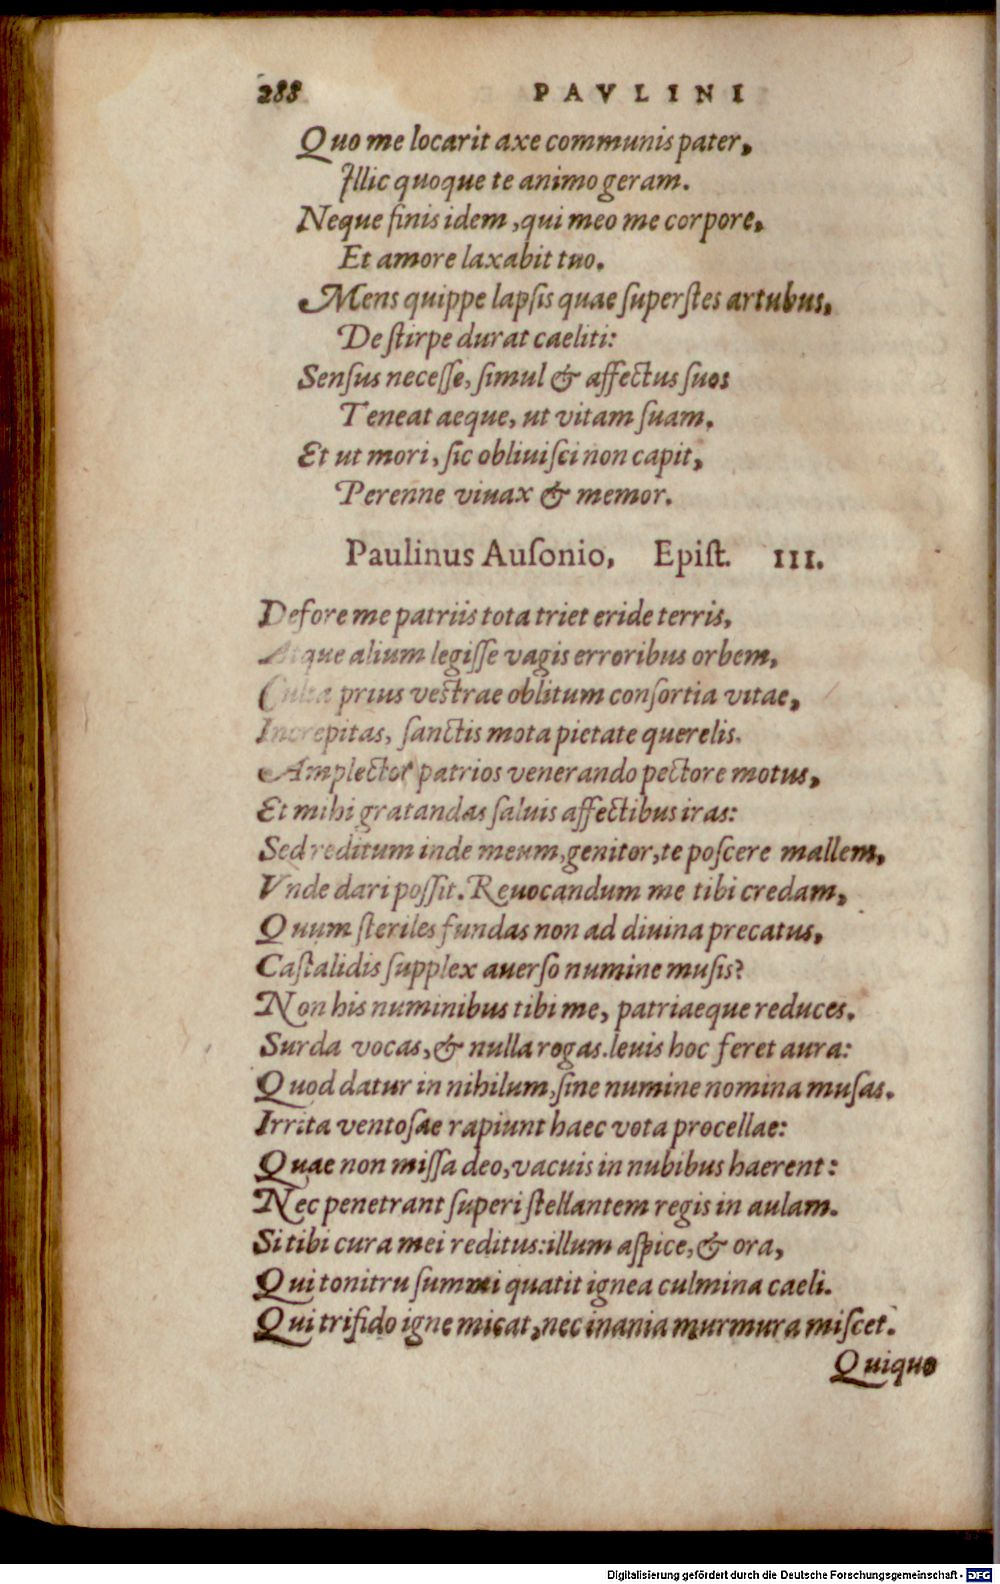 288 PAVLINI
Quo me locarit axe communis pater,
Illic quoque te animo geram.
Neque finis idem, qui meo me corpore,
Et amore laxabit tuo.
Mens quippe lapsis quae superstes artubus,
De stirpe durat caeliti:
Sensus necesse, simul & affectus suos
Teneat aeque, ut vitam suam.
Et ut mori, sic obliuisci non capit,
Perenne viuax & memor.
Paulinus Ausonio, Epist. III.
Defore me patriis tota triet eride terris,
Atque alium legisse vagis erroribus orbem,
Culta prius vestrae oblitum consortia vitae,
Increpitas, sanctis mota pietate querelis.
Amplector patrios venerando pectore motus,
Et mihi gratandas saluis affectibus iras:
Sed reditum inde meum, genitor, te poscere mallem,
Vnde dari possit. Reuocandum me tibi credam,
Quum steriles fundas non ad diuina precatus,
Castalidis supplex auerso numine musis?
Non his numinibus tibi me, patriaeque reduces.
Surda vocas, & nulla rogas. leuis hoc feret aura:
Quod datur in nihilum, sine numine nomina musas.
Irrita ventosae rapiunt haec vota procellae:
Quae non missa deo, vacuis in nubibus haerent:
Nec penetrant superi stellantem regis in aulam.
Si tibi cura mei reditus: illum aspice, & ora,
Qui tonitru summi quatit ignea culmina caeli.
Qui trifido igne micat, nec inania murmura miscet.
Quique
Digitalisierung gefördert durch die Deutsche Forschungsgemeinschaft - DFG